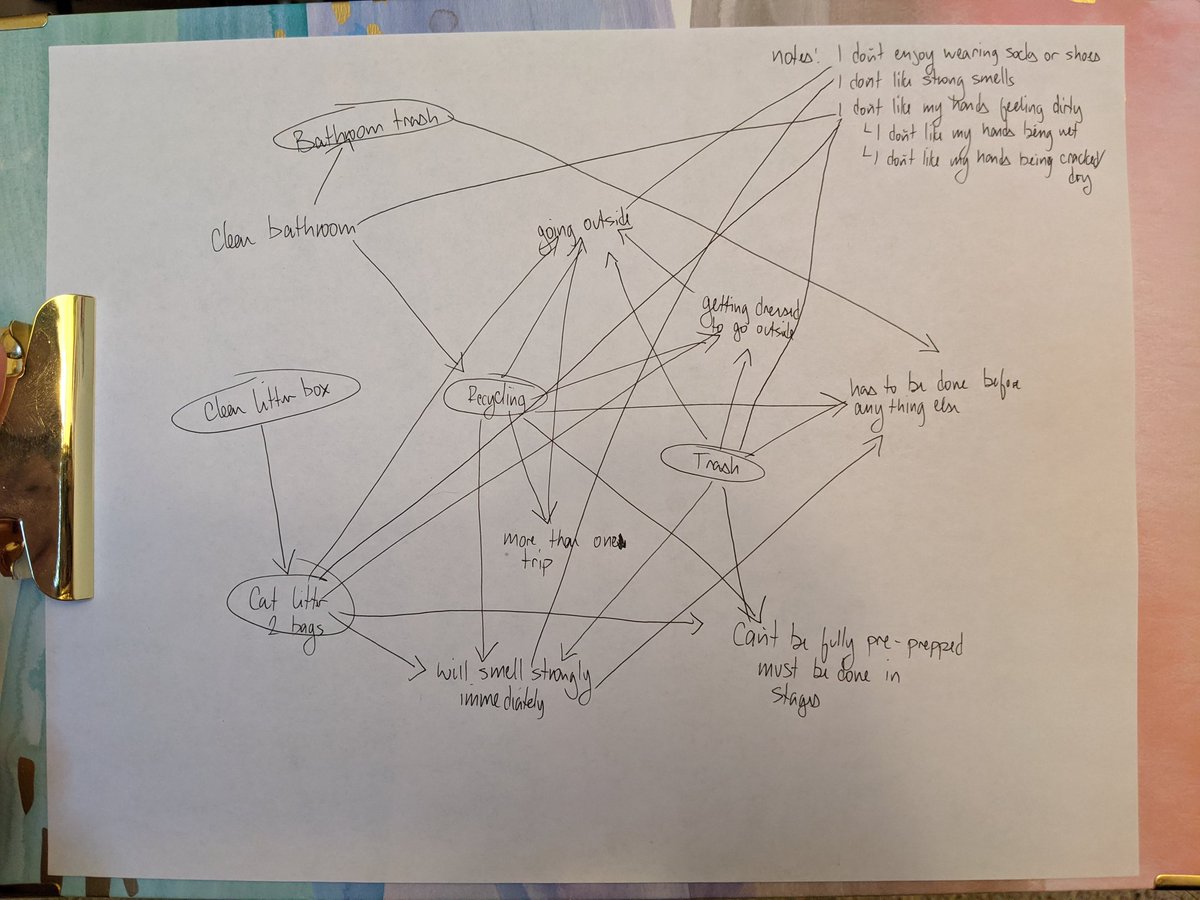 notes: I don't enjoy wearing socks or shoes
I dont like strong smells
I don't like my hands feeling dirty
I don't like my hands being wet
I don't like my hands being cracked/
dry
Bathroom trash
Clean bathroom
going outside
getting dressed
to go outside
Clean litter box
Recycling
has to be done before
anything else
Trash
more than one
trip
Cat litter
2 bags
Can't be fully pre-prepped
must be done in
stages
will smell strongly
immediately